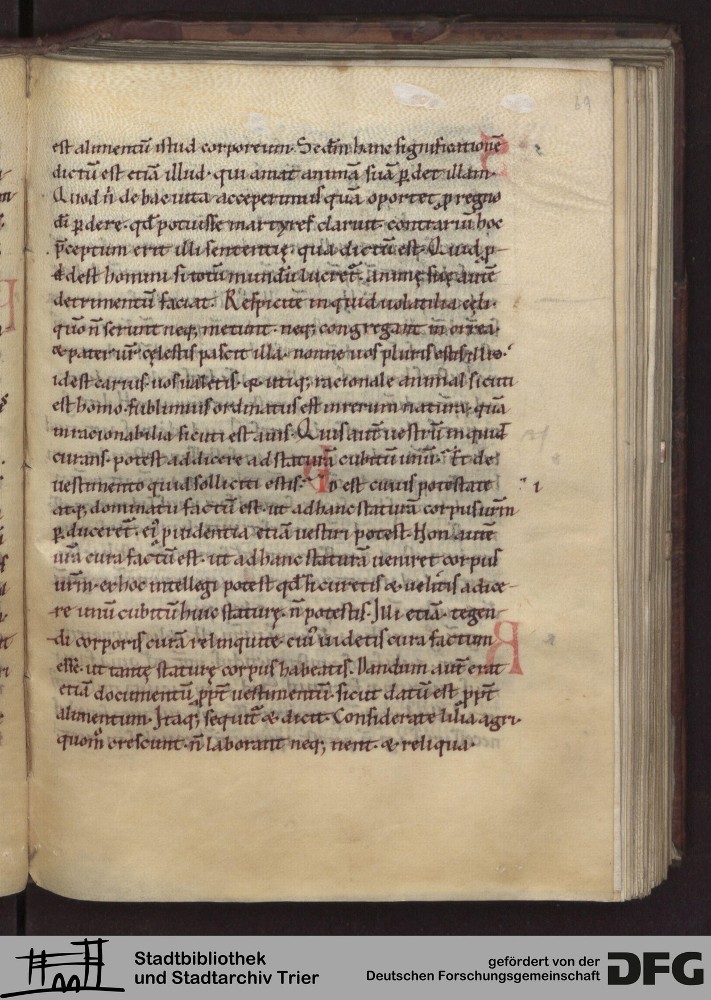 69
est alimentū istud corporeum. Secdm hanc significationē
dictū est etiā illud. qui amat animā suā p̱det illam.
Quod n̄ de hac uita acceperimus quā oportet ꝓ regno
di p̱dere. qd̄ potuisse martyres claruit. contrariū hoc
p̄ceptum erit illi sententię. qua dictū est. Quid ꝓ-
dest homini si totū mundū lucret᷑. animę suę autē
detrimentū faciat. Respicite inquid uolatilia cęli.
quō n̄ serunt neq; metunt. neq; congregant in orrea.
& pater ur̄ cęlestis pascit illa. nonne uos pluris estis illis.
id est carius uos ualetis. & utiq; racionale animal sicuti
est homo. sublimius ordinatus est in rerum natura. quā
inracionabilia sicuti est auis. Quis autē uestrū inquid
curans. potest addicere ad staturā cubitū unū. Et de
uestimento quid solliciti estis. Id est cuius potestate
atq; dominatu factū est. ut ad hanc staturā corpus urm̄
p̱duceret᷑. eiꝰ prudentia etiā uestiri potest. Non autē
urā cura factū est. ut ad hanc staturā ueniret corpus
urm̄. ex hoc intellegi potest qd̄ si curetis & uelitis adice-
re unū cubitū huic staturę. n̄ potestis. Illi etiā tegen
di corporis curā relinquite. cuiꝰ uidetis cura factum
esse. ut tantę staturę corpus habeatis. Dandum autē erat
etiā documentū ꝓpt̄ uestimentū. sicut datū est ꝓpt̄
alimentum. Itaq; sequit᷑ & dicit. Considerate lilia agri.
quom̊ crescunt. n̄ laborant neq; nent. & reliqua.
Stadtbibliothek
und Stadtarchiv Trier
gefördert von der
Deutschen Forschungsgemeinschaft
DFG